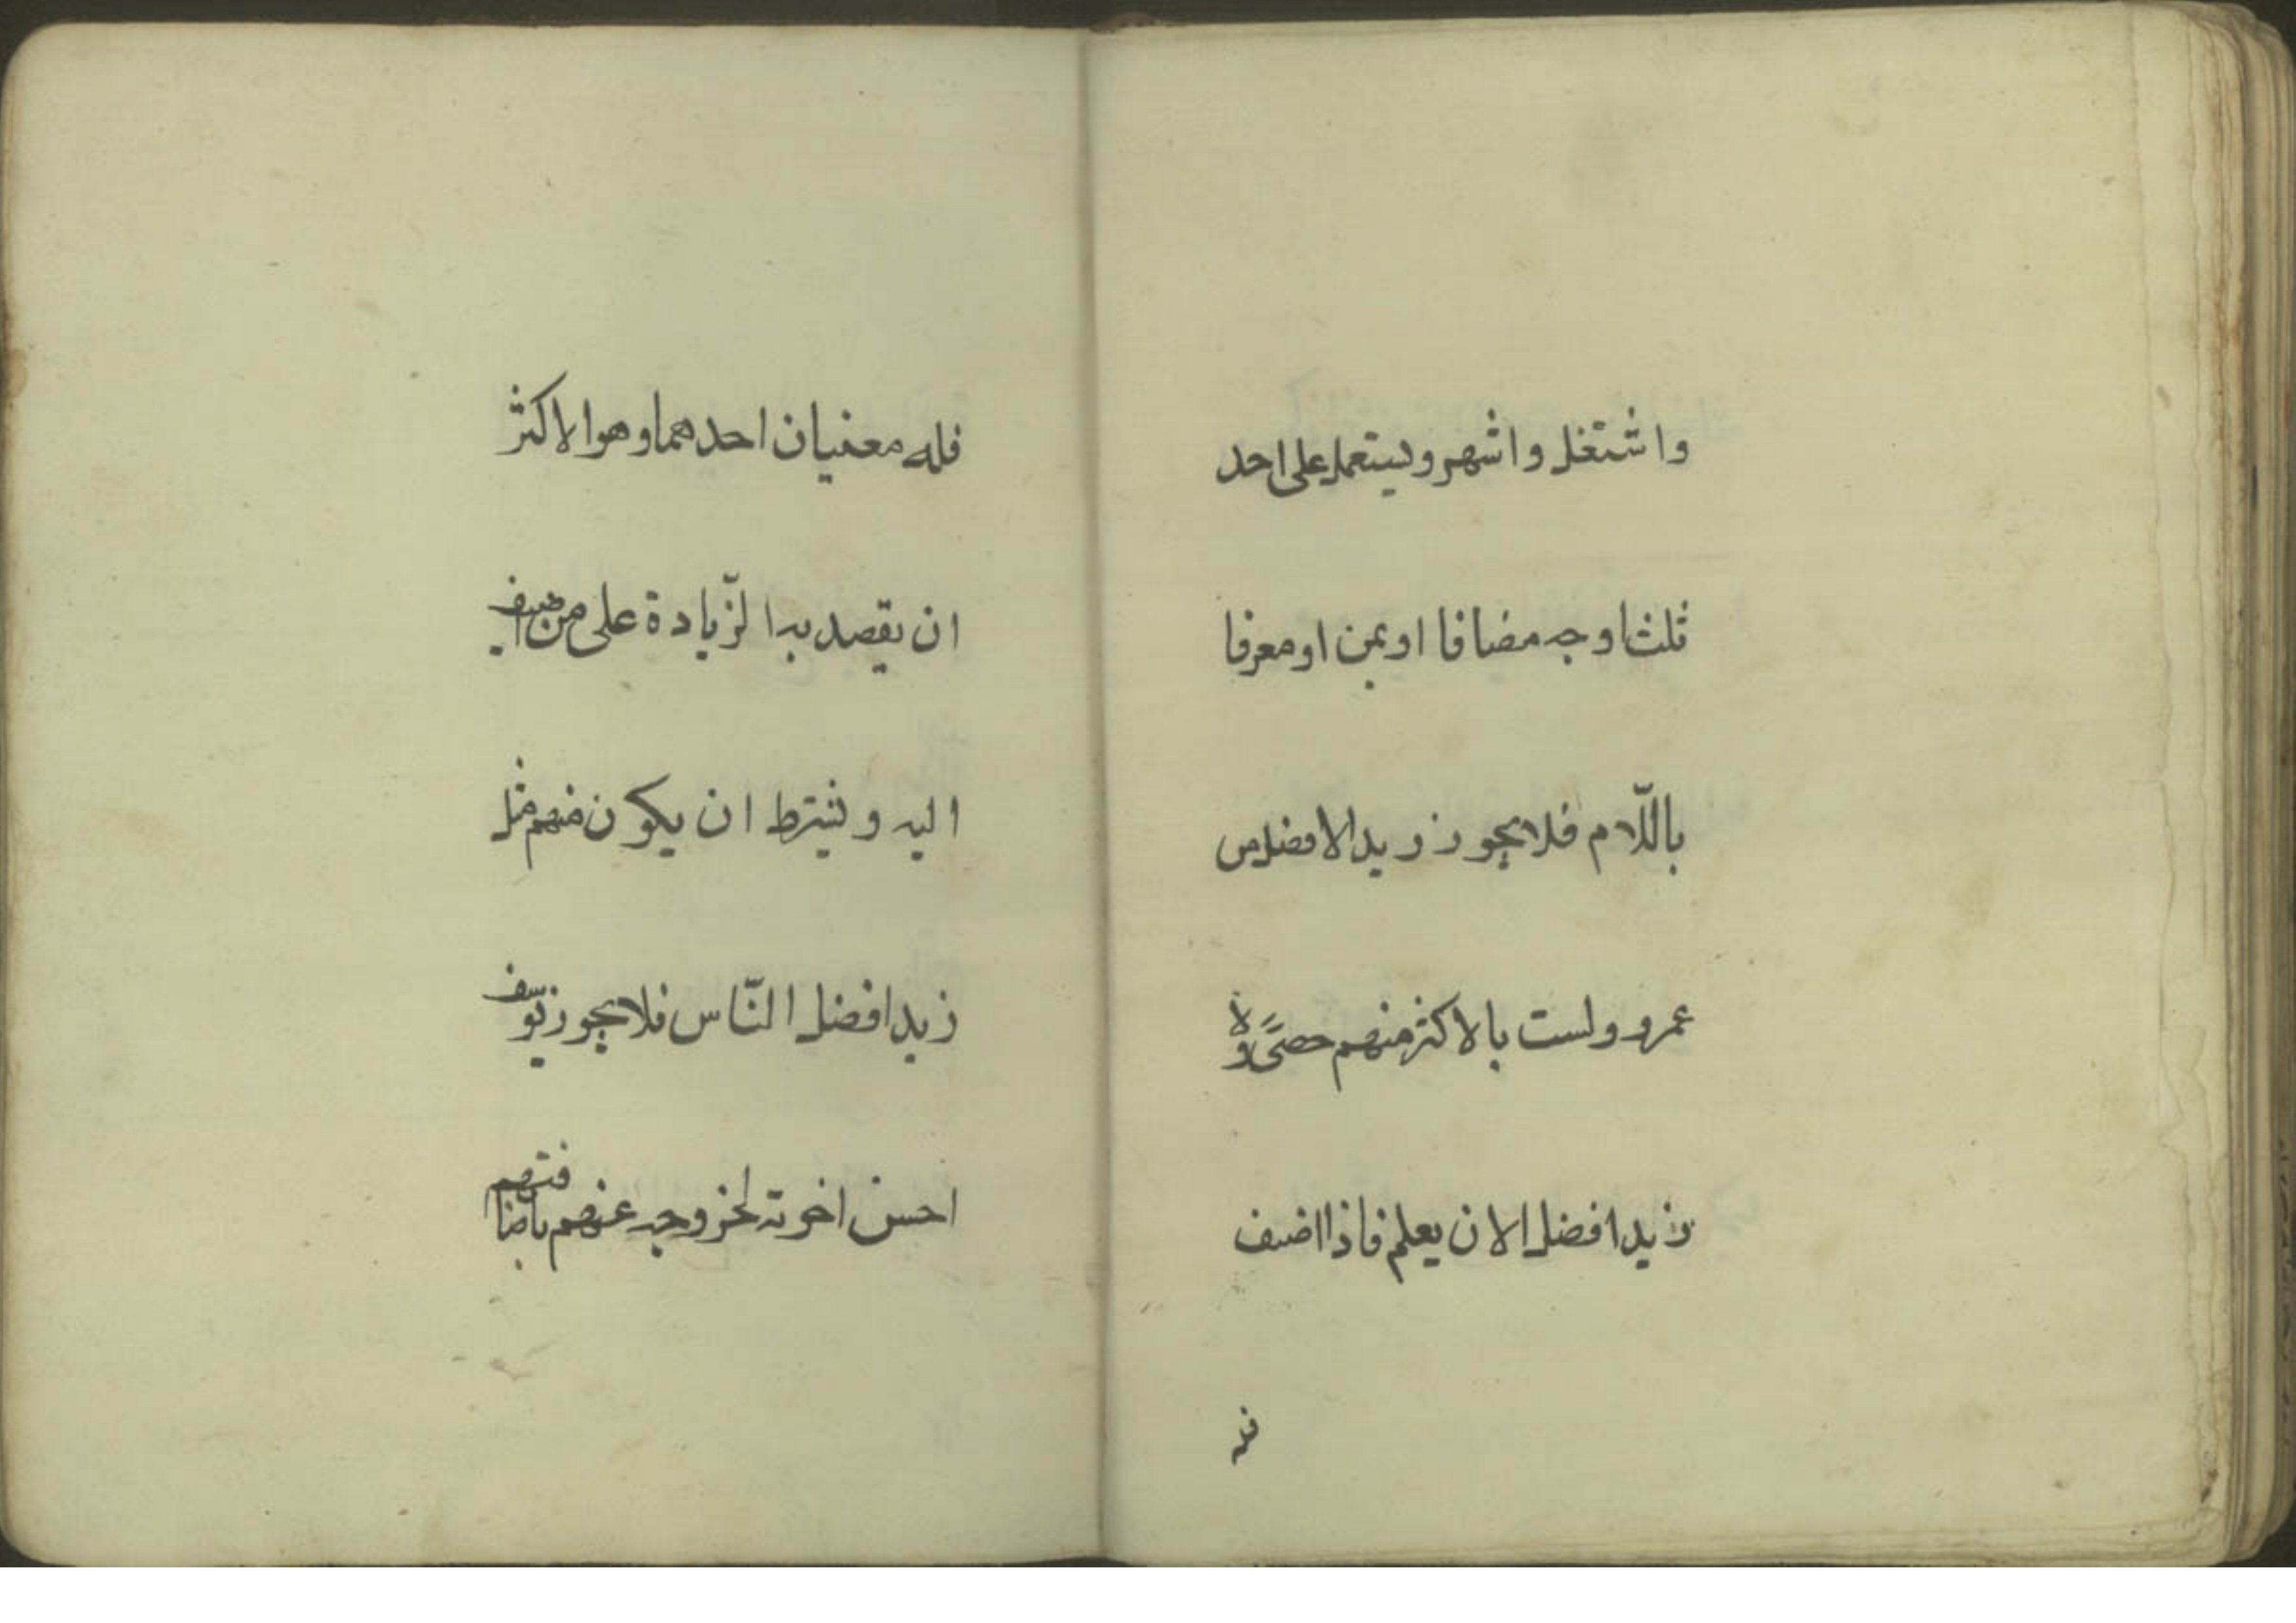 واشتغل واشهر ويستعمل على احد
ثلث اوجه مضافا او بمن او معرفا
باللّام فلا يجوز زيد الافضل من
عمرو ولست بالاكثر منهم حصًى ولا
زيد افضل الا ان يعلم فاذا اضيف
فله
فله معنيان احدهما وهو الاكثر
ان يقصد به الزّيادة على من اضيف
اليه ويشترط ان يكون منهم مثل
زيد افضل النّاس فلا يجوز يوسف
احسن اخوته لخروجه عنهم باضافتهم